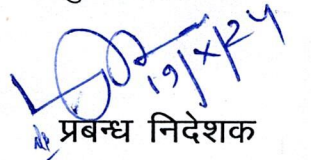 19/X/24
प्रबन्ध निदेशक